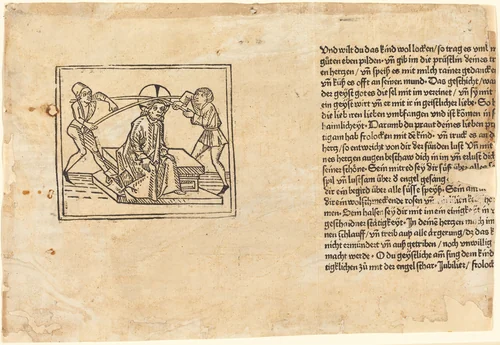 Vnd wilt du das kind wol locken/so trag es vmb m
gůten eben pilden· vñ gib im die prüstlin deines tr
en hertzen/vñ speiß es mit milch rainer gedancken
vñ küß es offt an seinen mund· Das geschicht/wan
der geyst gotes die sel mit im vereinet/vñ sy mit
ein geyst wirt vñ er mit ir in geistlicher liebe· So
die lieb iren lieben vmbfangen vnd ist kömen in
haimlicheyt· Darumb du praut deines lieben pr
tigam hab frolocken mit dē kind· vñ truck es an de
hertz/so entweicht von dir der sünden lust Vñ mit
nes hertzen augen beschaw dich in im vñ erlust dich
seiner schöne· Sein mitred sey dir süß über alle
spil vñ lustsam über d engel gesang
dir ein begird über alle süsse speyß· Sein
dir ein wolschmeckende rosen vñ
men· Dein halsen sey dir mit im ein einigkeit in
geschaidner stätigkeyt· In deinē hertzen mach im
nen schlauff/vñ treib auß alle ärgerung/dz das k
nicht ermündert vñ auß getriben/noch vnwillig
macht werde· O du geystliche am̄ sing dem kind
tigklichen zů mit der engel schar· Jubilier/frolock